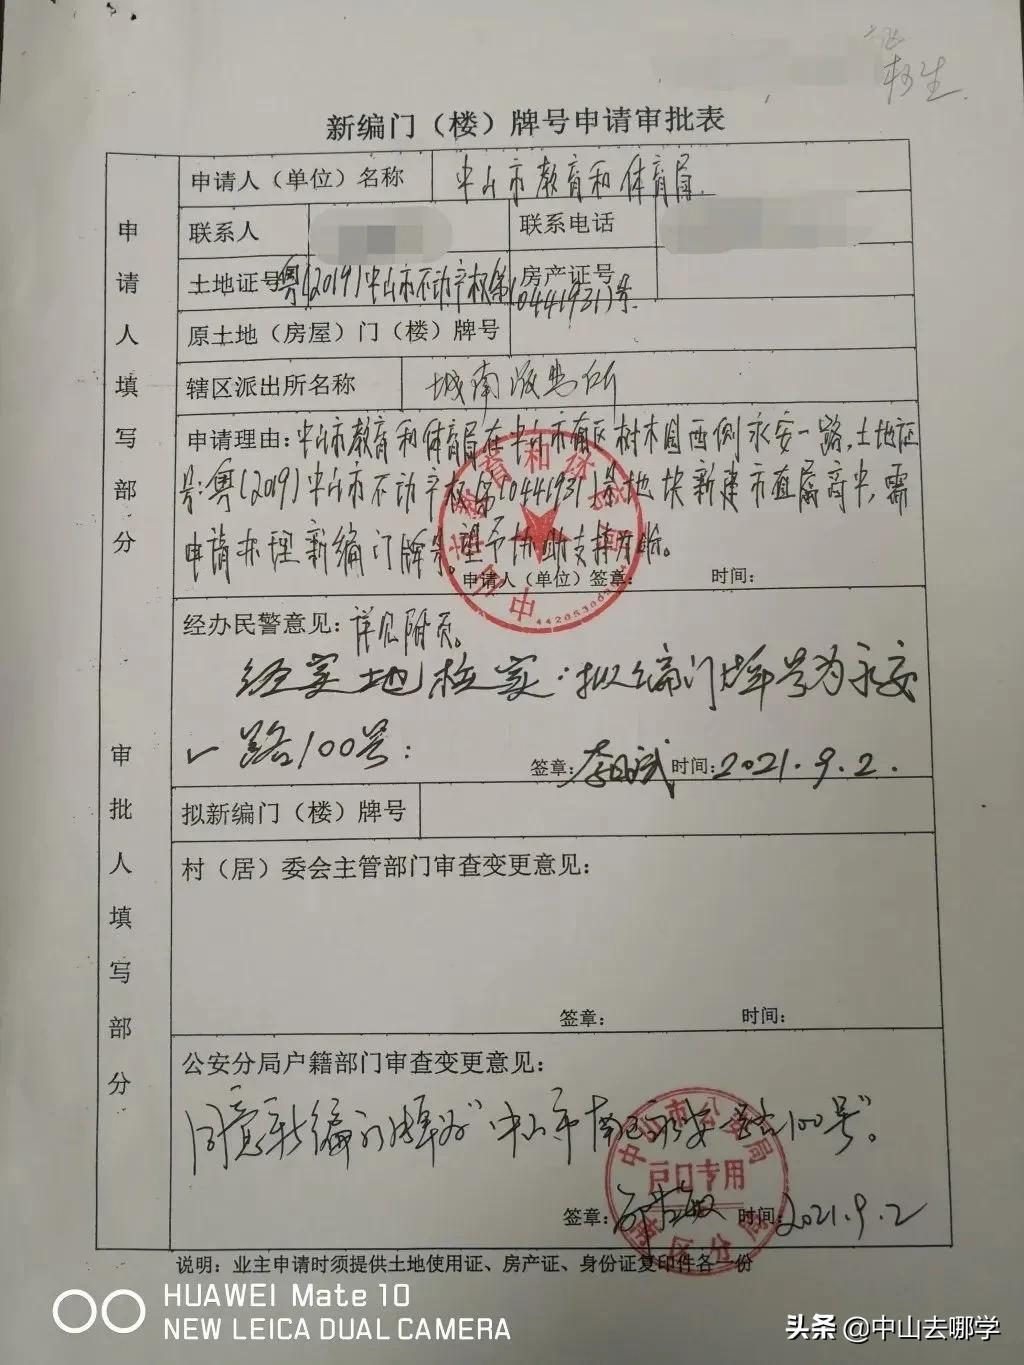 转生
新编门（楼）牌号申请审批表
申请人填写部分
申请人（单位）名称 中山市教育和体育局.
联系人
联系电话
土地证号 粤(2019)中山市不动产权第(0441931)号.
房产证号
原土地（房屋）门（楼）牌号
辖区派出所名称 城南派出所
申请理由：中山市教育和体育局在中山市南区树木园西侧永安一路,土地证
号:粤(2019)中山市不动产权第(0441931)号地块新建市直属高中,需
申请办理新编门牌号,望予协助支持为盼。
申请人（单位）签章： 时间：
中山市教育和体育局
审批人填写部分
经办民警意见：详见附页。
经实地检察:拟编门牌号为永安
一路100号:
签章： 时间:2021.9.2.
拟新编门（楼）牌号
村（居）委会主管部门审查变更意见：
签章： 时间：
公安分局户籍部门审查变更意见：
同意新编门牌为"中山市南区永安一路100号"。
签章： 时间:2021.9.2
中山市公安局南区分局
户口专用
说明：业主申请时须提供土地使用证、房产证、身份证复印件各一份
HUAWEI Mate 10
NEW LEICA DUAL CAMERA
头条 @中山去哪学